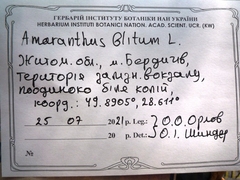 ГЕРБАРІЙ ІНСТИТУТУ БОТАНІКИ НАН УКРАЇНИ
HERBARIUM INSTITUTI BOTANICI NATION. ACAD. SCIENT. UCR. (KW)
Amaranthus Blitum L.
Житом. обл., м. Бердичів,
територія залізн. вокзалу,
поодиноко біля колій,
коорд.: 49.8905°, 28.611°
25 07 2021 р. Leg.: О.О. Орлов
20 р. Det.: О.І. Шиндер
№